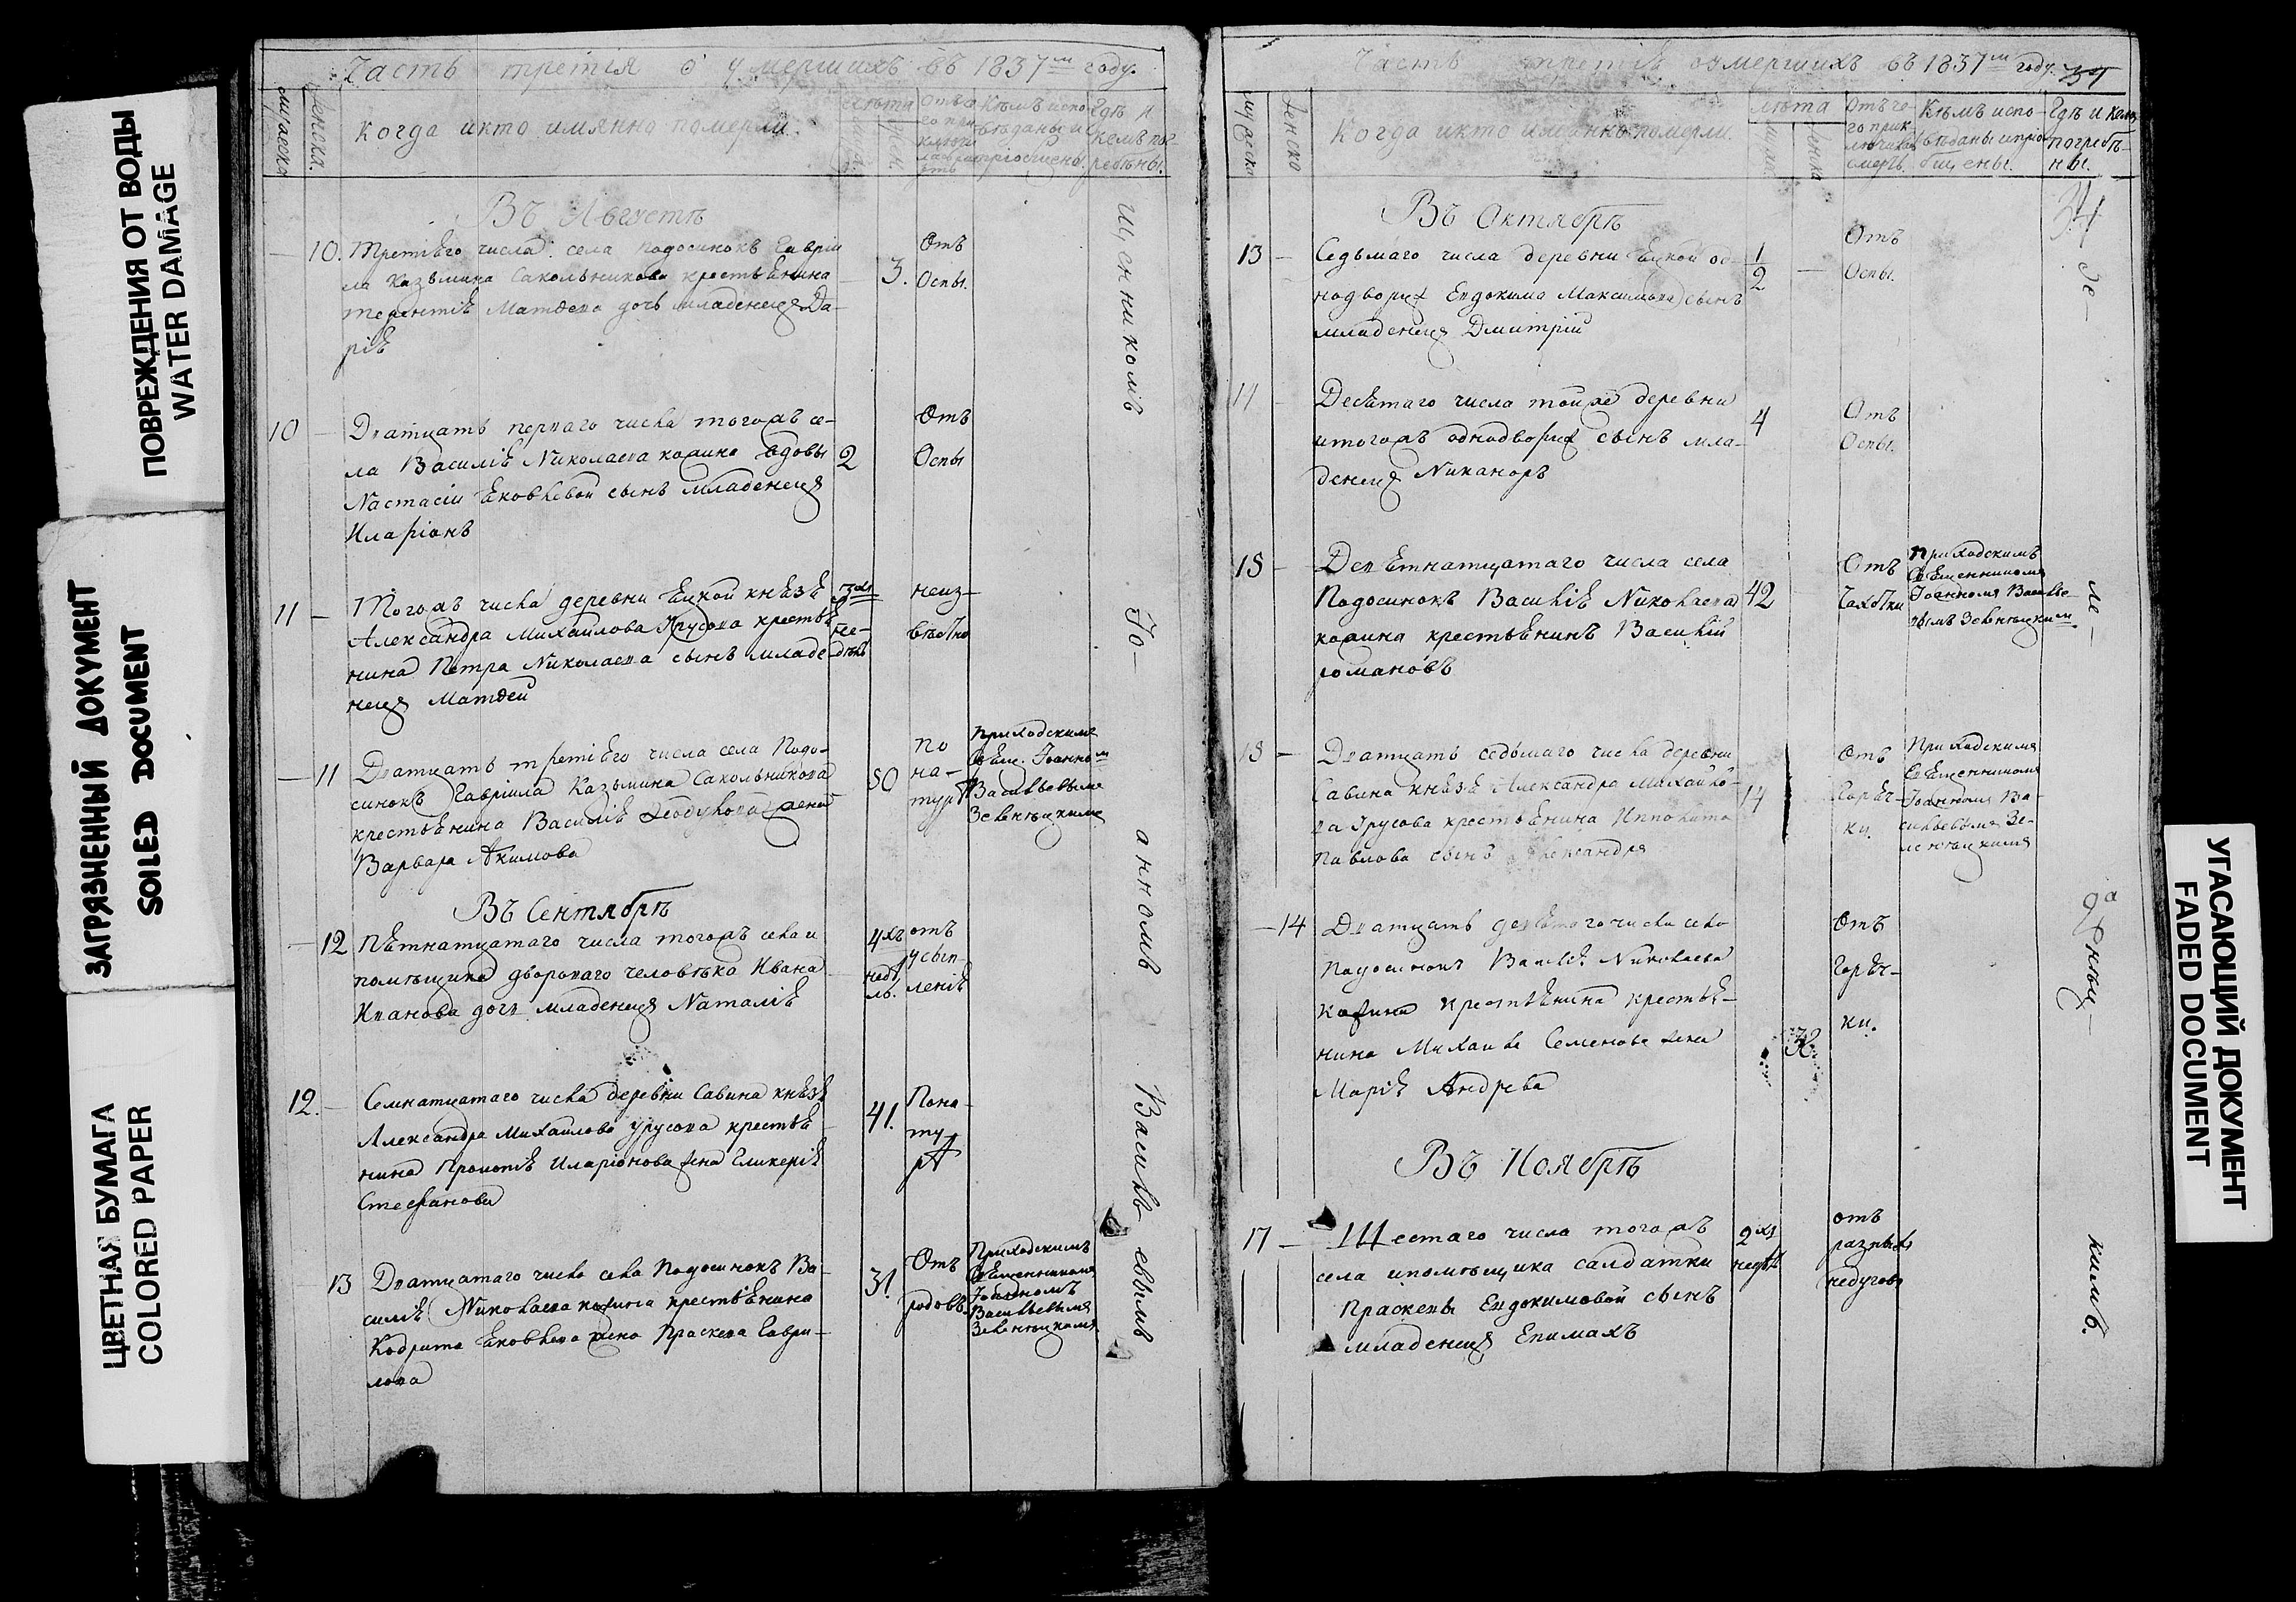 ПОВРЕЖДЕНИЯ ОТ ВОДЫ
WATER DAMAGE
ЗАГРЯЗНЕННЫЙ ДОКУМЕНТ
SOILED DOCUMENT
ЦВЕТНАЯ БУМАГА
COLORED PAPER
Часть третія о умершихъ въ 1837мъ году.
мужеска
женска.
Когда икто имянно померли.
лѣта
жен.
Отъ че
го при
ключи
лась см
рть
Кѣмъ испо
вѣданы и
пріобщены.
Гдѣ и
кемъ пог
ребѣны.
Въ Августѣ
10. Третіего числа села Подосинокъ Гаврiи
ла Казьмина Сакольникова крестьѣнина
терентіѣ Матѳева дочь младенецъ Да-
ріѣ
3.
Отъ
Оспы.
10 Дватцать перваго числа тогожъ се-
ла Василіѣ Николаева кожина вдовы
Настасіи Ѣковлевой сынъ младенецъ
Иларіонъ
2
Отъ
Оспы
11 Тогожъ числа деревни Ецкой князѣ
Александра Михайлова Урусова крестьѣ
нина Петра Николаева сынъ младе
нецъ Матѳей
3хъ
не-
дѣль
неиз-
вѣстно
11 Дватцать третіего числа села Подо-
синокъ Гавріила Казьмина Сакольникова
крестьѣнина Василіѣ Ѳеодулова жена
Варвара Акимова
50
По
на-
турѣ
Приходскимъ
Свѣщ. Іоанномъ
Васильевымъ
Зеленецкимъ
Въ Сентябрѣ
12 Пѣтнатцатаго числа тогожъ села и
помѣщика двороваго человѣка Ивана
Иванова дочь младенецъ Наталіѣ
4хъ
недѣ
ль.
отъ
усып
леніѣ
12. Семнатцатаго числа деревни Савина князѣ
Александра Михайлова Урусова крестьѣ
нина Прокопіѣ Иларіонова жена Гликеріѣ
Стефанова
41.
Пона-
ту
рѣ
13 Дватцатаго числа села Подосинокъ Ва-
силіѣ Николаева кожина крестьѣнина
Кодрата Ѣковлева жена Праскева Гаври-
лова
31.
Отъ
родовъ.
Приходскимъ
Свѣщенникомъ
Іоанномъ
Васильевымъ
Зеленецкимъ
щенникомъ
Іо-
анномъ
Василь-
евымъ
Часть третіѣ оумершихъ въ 1837мъ году.
мужеска
Женска
Когда икто имянно померли.
лѣта
женска
Отъ че-
го прик
лючилась
смерть.
Кѣмъ испо-
вѣданы ипріо
бщены.
Гдѣ и кемъ
погребѣ-
ны.
34
Въ Октябрѣ
13 Седьмаго числа деревни Ецкой од-
нодворца Евдокима Максимова сынъ
младенецъ Дмитрій
1/2
Отъ
Оспы.
14 Десѣтаго числа тойже деревни
итогожъ однодворца сынъ мла-
денецъ Никаноръ
4
Отъ
Оспы.
15 Девѣтнатцатаго числа села
Подосинокъ Василіѣ Николаева
кожина крестьѣнинъ Василій
романовъ
42
Отъ
Чахотки
Приходскимъ
Свѣщенникомъ
Іоанномъ Василье-
вымъ Зеленецкимъ.
Дватцать седьмаго числа деревни
Савина князѣ Александра Михайло-
ва Урусова крестьѣнина Ипполита
Павлова сынъ Александръ
14
Отъ
Горѣч-
ки.
Приходскимъ
Свѣщенникомъ
Іоанномъ Ва-
сильевымъ Зе-
ленецкимъ
14 Дватцать девѣтого числа села
Подосинокъ Василіѣ Николаева
Кожина крестьѣнина крестьѣ-
нина Михаила Семенова жена
Маріѣ Андрева
Отъ
Горѣч-
ки.
Въ Ноябрѣ
17 Шестаго числа тогожъ
села ипомѣщика салдатки
Праскевы Евдокимовой сынъ
младенецъ Епимахъ
2хъ
недѣл
отъ
разныхъ
недуговъ
Зе-
ле-
нѣц-
кимъ.
УГАСАЮЩИЙ ДОКУМЕНТ
FADED DOCUMENT